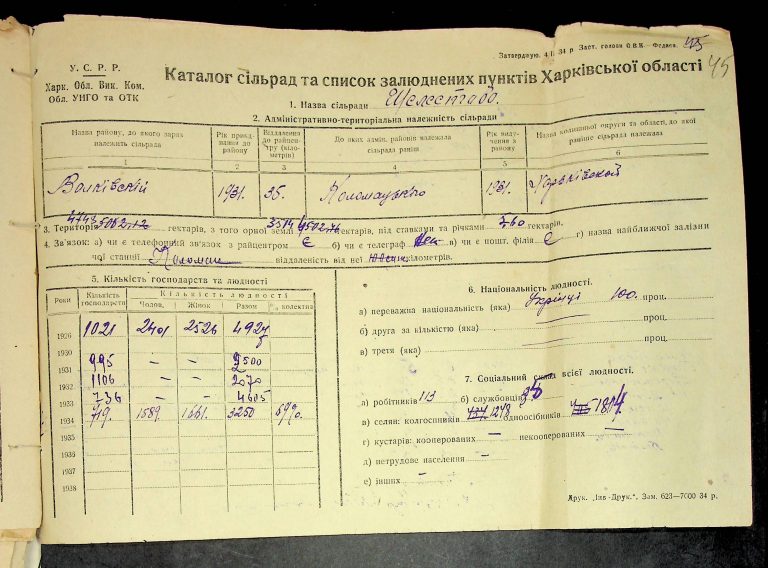 Затверджую. 4 I. 34 р Заст. голови О.В.К.
45
45
У. С. Р. Р.
Харк. Обл. Вик. Ком.
Обл. УНГО та ОТК
Каталог сільрад та список залюднених пунктів Харківської області
1. Назва сільради
2. Адміністративно-територіальна належність сільради
Назву району, до якого зараз належить сільрада
Рік приєднання до району
Віддалення до райцентру (кілометрів)
До яких адмін. районів належала сільрада раніш
Рік вилучення з району
Назва колишньої округи та області, до якої раніше сільрада належала
1 2 3 4 5 6
Волківській 1931. 35. Коломацького 1931. Харьківской
3. Територія гектарів, з того орної землі гектарів, під ставками та річками 760 гектарів.
4. Зв'язок: а) чи є телефонний зв'язок з райцентром є б) чи є телеграф в) чи є пошт. філія є г) назва найближчої залізни
чої станції Коломак віддаленість від неї кілометрів.
5. Кількість господарств та людності
Роки Кількість господарств Кількість людності
Чолов. Жінок Разом % колектив
1926 1021 2401 2526
1930
1931 995 — — 2500
1932 1106 — — 2070
1933 736 — — 4605
1934 719. 1589. 1661. 3250
1935
1936
1937
1938
6. Національність людності.
а) переважна національність (яка) Українці 100. проц.
б) друга за кількістю (яка) проц.
в) третя (яка)
7. Соціальний склад всієї людності.
а) робітників 113 б) службовців
в) селян: колгоспників 1278 одноосібників 1814.
г) кустарів: кооперованих — некооперованих —
д) нетрудове населення —
е) інших —
Друк. Зам. 623—7000 34 р.